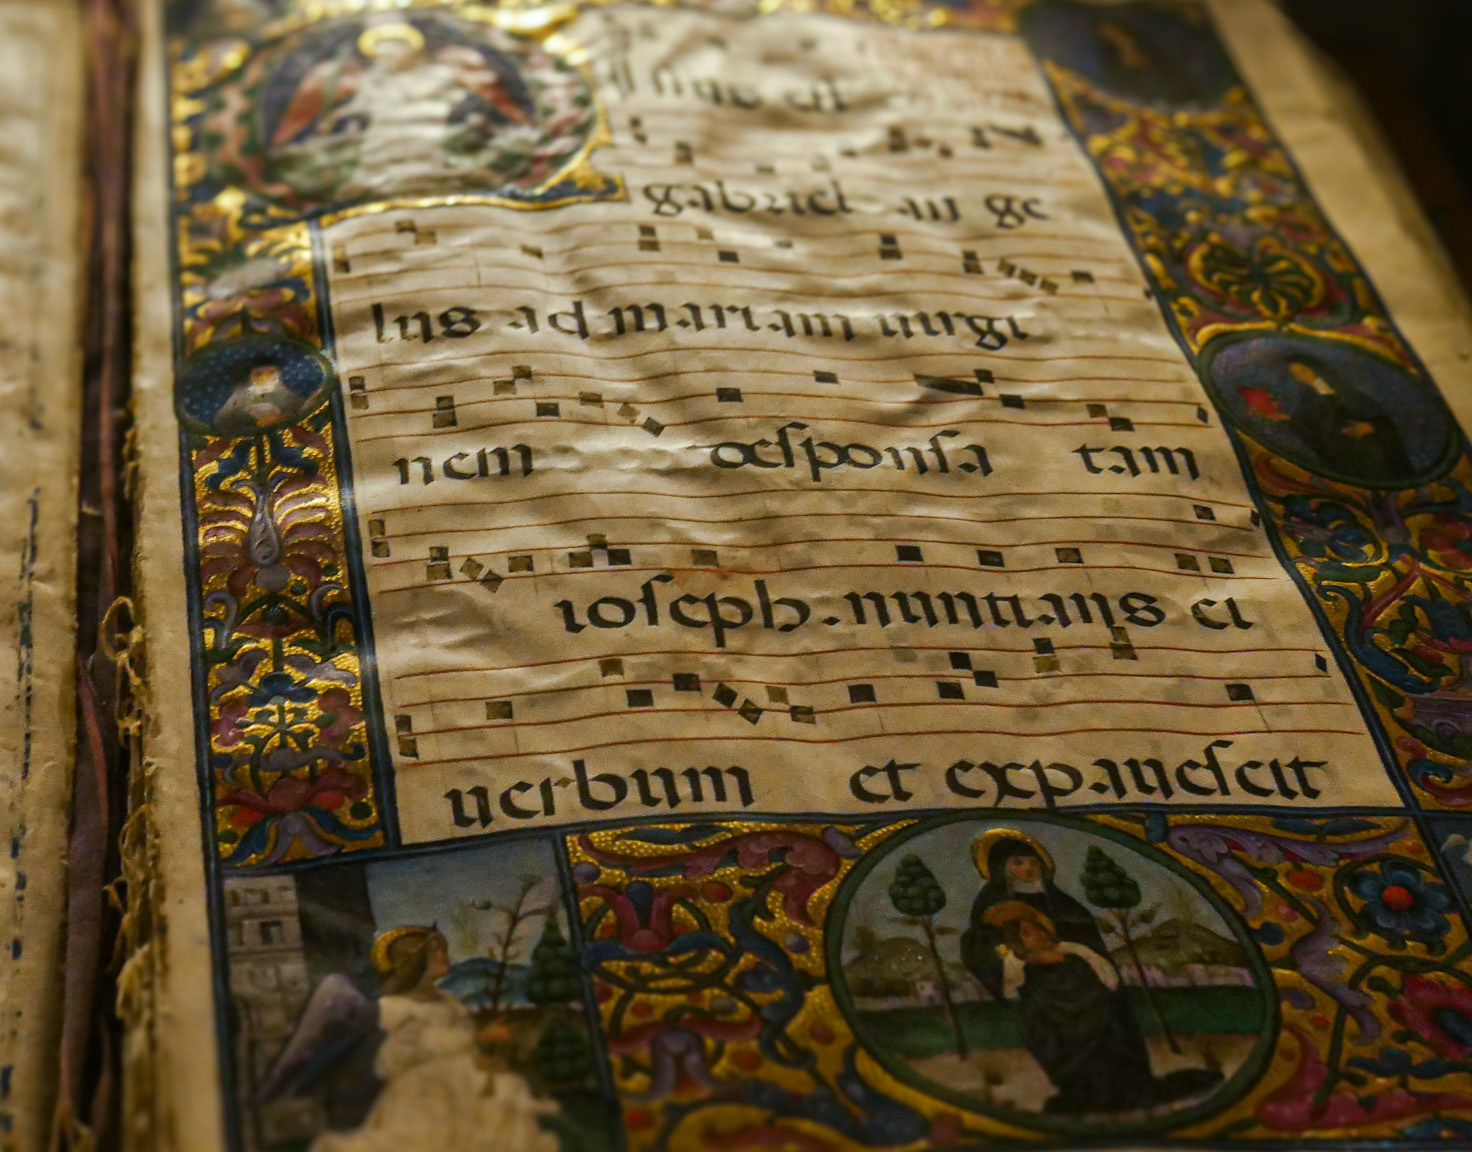 gabriel an ge
lus ad mariam uirgi
nem desponsa tam
ioseph. nuntians ei
uerbum et expauescit